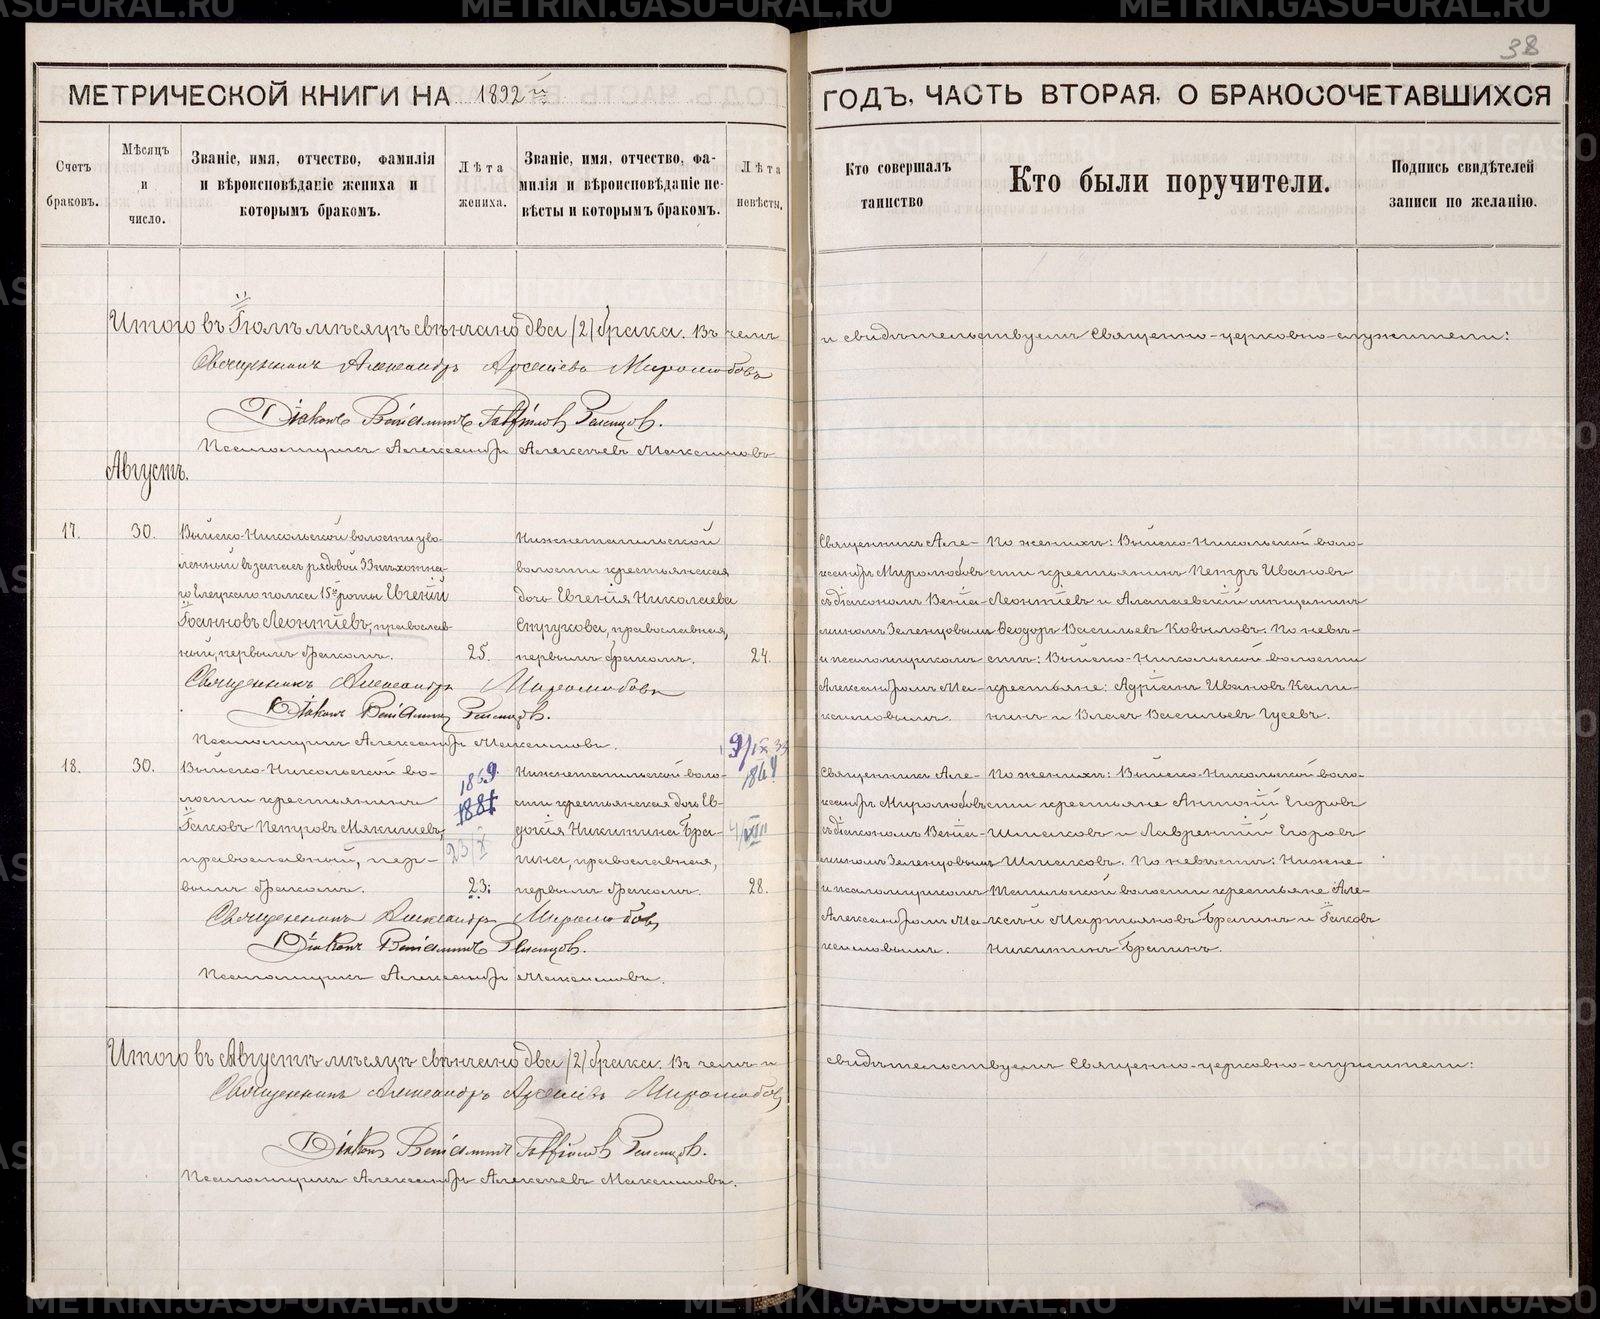 38
МЕТРИЧЕСКОЙ КНИГИ НА 1892 й
ГОДЪ, ЧАСТЬ ВТОРАЯ, О БРАКОСОЧЕТАВШИХСЯ
Счетъ
браковъ.
Мѣсяцъ
и
число.
Званіе, имя, отчество, фамилія
и вѣроисповѣданіе жениха и
которымъ бракомъ.
Лѣта
жениха.
Званіе, имя, отчество, фа-
милія и вѣроисповѣданіе не-
вѣсты и которымъ бракомъ.
Лѣта
невѣсты.
Кто совершалъ
таинство
Кто были поручители.
Подпись свидѣтелей
записи по желанію.
Итого въ Іюлѣ мѣсяцѣ свѣнчано два (2) брака. Въ чемъ
и свидѣтельствуемъ Священно-церковно-служители:
Священникъ Александръ Арсеніевъ Миролюбовъ
Діаконъ Веніаминъ Гавріиловъ Зеленцовъ.
Псаломщикъ Александръ Алексѣевъ Максимовъ
Августъ.
17.
30.
Выйско-Никольской волости уво-
ленный въ запасъ рядовой 33 пѣхотна-
го Елецкаго полка 15й роты Евгеній
Іоанновъ Леонтіевъ, православ-
ный, первымъ бракомъ.
25.
Нижнетагильской
волости крестьянская
дочь Евгенія Николаева
Стругкова, православная,
первымъ бракомъ.
24.
Священникъ Але-
ксандръ Миролюбовъ
съ діакономъ Веніа-
миномъ Зеленцовымъ
и псаломщикомъ
Александромъ Ма-
ксимовымъ.
По женихѣ: Выйско-Никольской воло-
сти крестьянинъ Петръ Ивановъ
Леонтіевъ и Алапаевскій мѣщанинъ
Ѳеодоръ Васильевъ Ковыловъ. По невѣ-
стѣ: Выйско-Никольской волости
крестьяне: Адріанъ Ивановъ Кали-
нинъ и Власъ Васильевъ Гусевъ.
Священникъ Александръ Миролюбовъ
Діаконъ Веніаминъ Зеленцовъ.
Псаломщикъ Александръ Максимовъ.
18.
30.
Выйско-Никольской во-
лости крестьянинъ
Іаковъ Петровъ Мякишевъ,
православный, пер-
вымъ бракомъ.
1869
23/X
23.
Нижнетагильской воло-
сти крестьянская дочь Ев-
докія Никитина Бра-
гина, православная,
первымъ бракомъ.
9/IX 33
1864
4/VIII
28.
Священникъ Але-
ксандръ Миролюбовъ
съ діакономъ Веніа-
миномъ Зеленцовымъ
и псаломщикомъ
Александромъ Ма-
ксимовымъ.
По женихѣ: Выйско-Никольской воло-
сти крестьяне Антоній Егоровъ
Шмаковъ и Лаврентій Егоровъ
Шмаковъ. По невѣстѣ: Нижне-
Тагильской волости крестьяне Але-
ксѣй Мартьяновъ Брагинъ и Іаковъ
Никитинъ Брагинъ.
Священникъ Александръ Миролюбовъ
Діаконъ Веніаминъ Зеленцовъ.
Псаломщикъ Александръ Максимовъ.
Итого въ Августѣ мѣсяцѣ свѣнчано два (2) брака. Въ чемъ и
свидѣтельствуемъ Священно-церковно-служители:
Священникъ Александръ Арсеніевъ Миролюбовъ
Діаконъ Веніаминъ Гавріиловъ Зеленцовъ.
Псаломщикъ Александръ Алексѣевъ Максимовъ.
METRIKI.GASO-URAL.RU